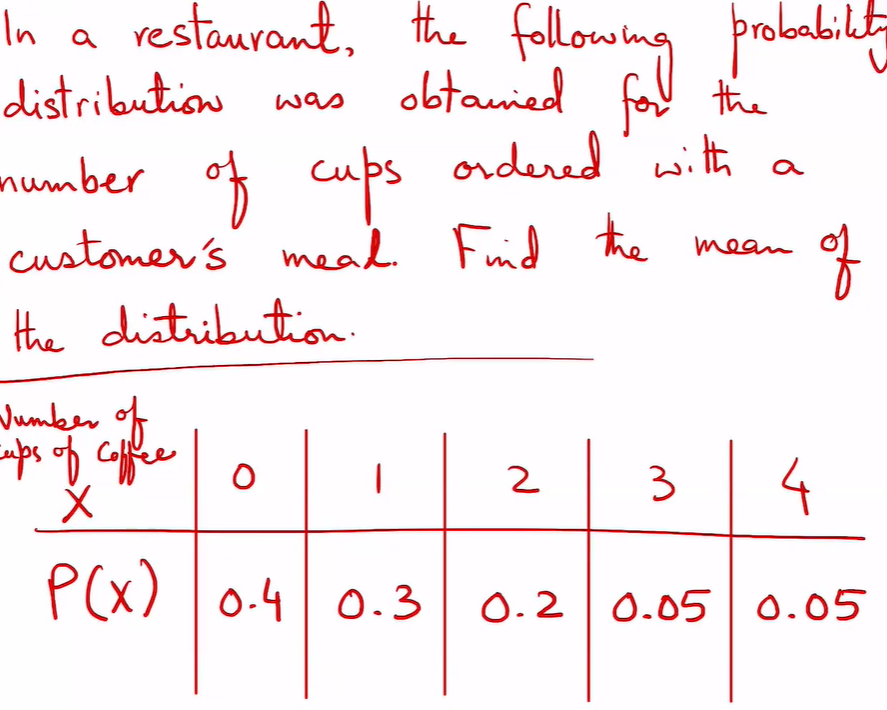 In a restaurant, the following probability
distribution was obtained for the
number of cups ordered with a
customer's meal. Find the mean of
the distribution.
Number of
cups of Coffee
X 0 1 2 3 4
P(x) 0.4 0.3 0.2 0.05 0.05